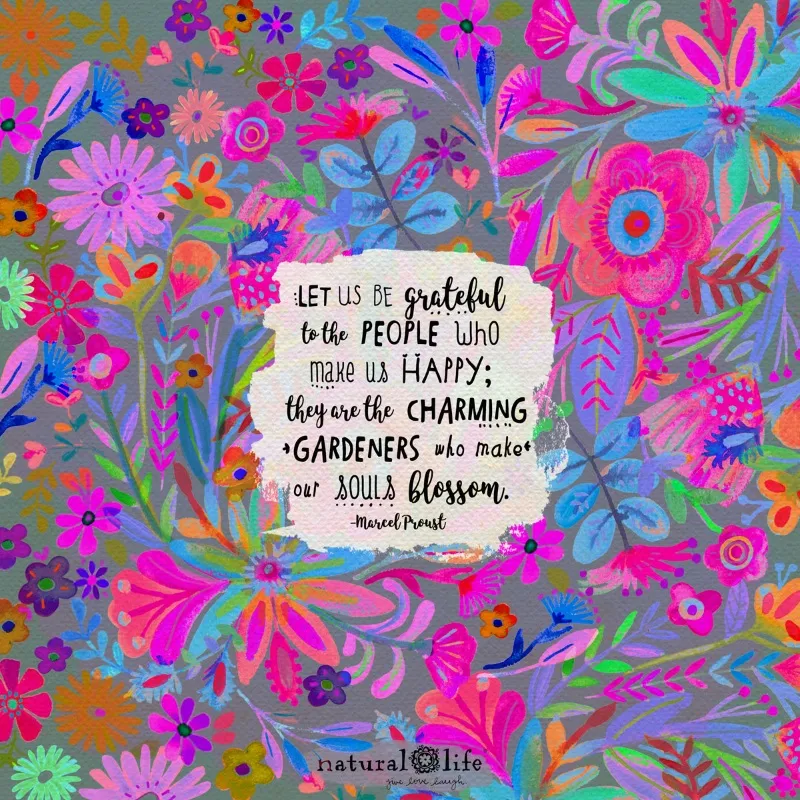 LET US BE grateful
to the PEOPLE WHO
make us HAPPY;
they are the CHARMING
GARDENERS who make
our SOULS blossom.
-Marcel Proust
natural life
give love laugh